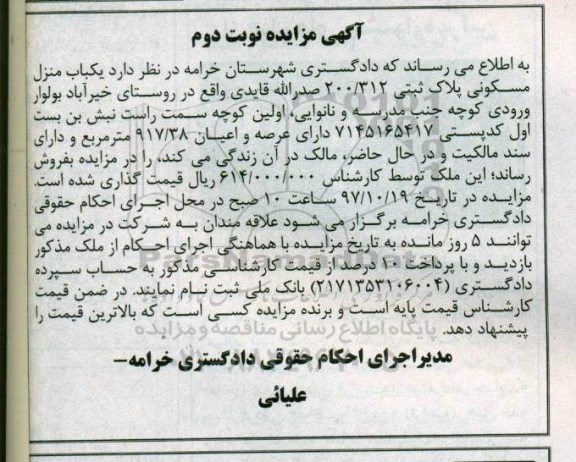 آگهی مزایده نوبت دوم
به اطلاع می رساند که دادگستری شهرستان خرامه در نظر دارد یکباب منزل
مسکونی پلاک ثبتی ۲۰۰/۳۱۲ صدرالله قایدی واقع در روستای خیرآباد بولوار
ورودی کوچه جنب مدرسه و نانوایی، اولین کوچه سمت راست نبش بن بست
اول کدپستی ۷۱۴۵۱۶۵۴۱۷ دارای عرصه و اعیان ۹۱۷/۳۸ مترمربع و دارای
سند مالکیت و در حال حاضر، مالک در آن زندگی می کند، را در مزایده بفروش
رساند؛ این ملک توسط کارشناس ۶۱۴/۰۰۰/۰۰۰ ریال قیمت گذاری شده است.
مزایده در تاریخ ۹۷/۱۰/۱۹ ساعت ۱۰ صبح در محل اجرای احکام حقوقی
دادگستری خرامه برگزار می شود علاقه مندان به شرکت در مزایده می
توانند ۵ روز مانده به تاریخ مزایده با هماهنگی اجرای احکام از ملک مذکور
بازدید و با پرداخت ۱۰ درصد از قیمت کارشناسی مذکور به حساب سپرده
دادگستری (۲۱۷۱۳۵۳۱۰۶۰۰۴) بانک ملی ثبت نام نمایند. در ضمن قیمت
کارشناس قیمت پایه است و برنده مزایده کسی است که بالاترین قیمت را
پیشنهاد دهد.
پایگاه اطلاع رسانی مناقصه و مزایده
مدیر اجرای احکام حقوقی دادگستری خرامه–
علیائی